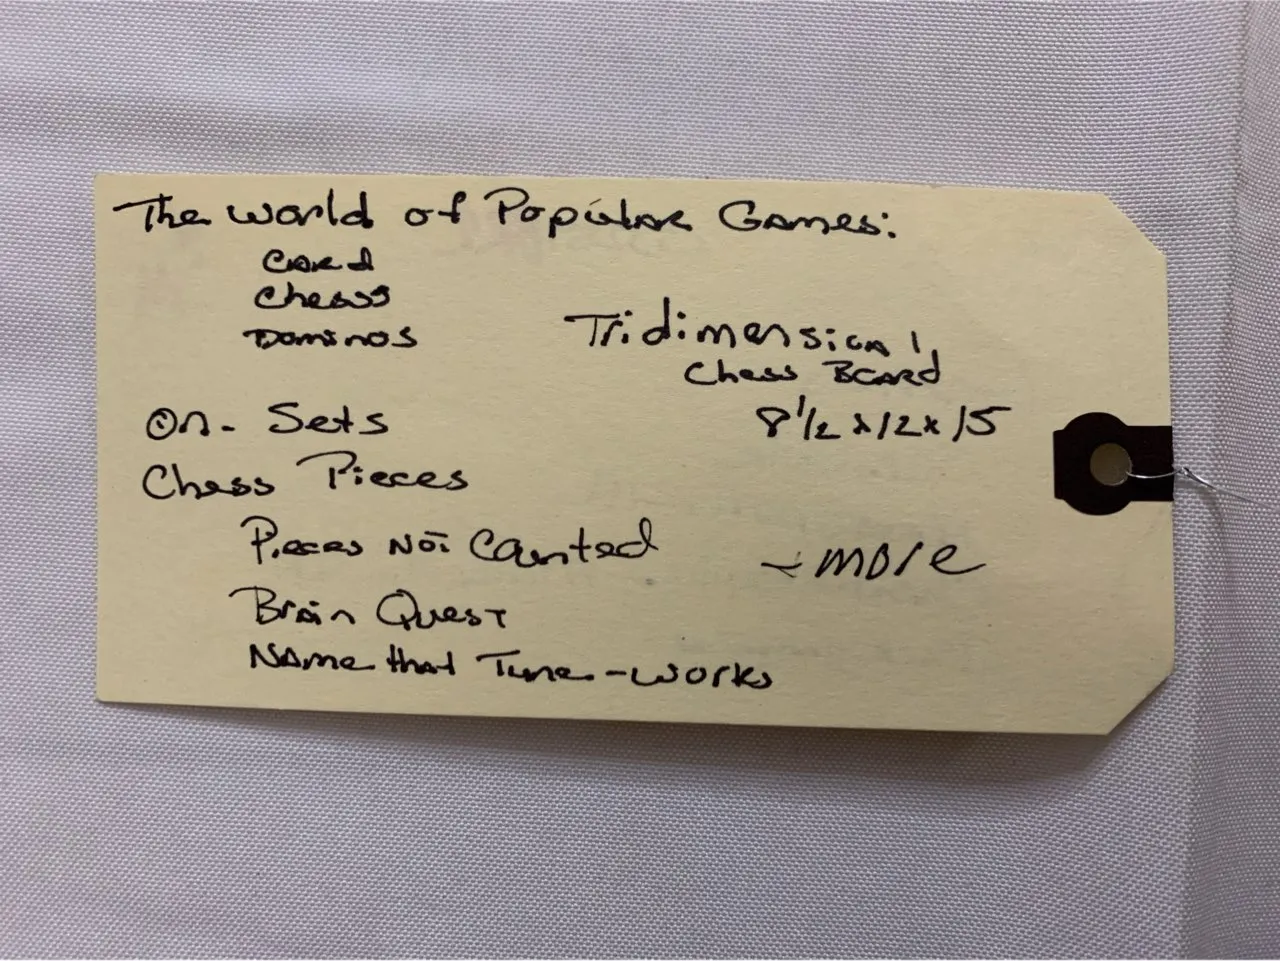 The World of Popular Games:
Card
Chess
Dominos
Tridimensional
Chess Board
8 1/2 x 12 x 15
On- Sets
Chess Pieces
Pieces Not Counted
- more
Brain Quest
Name that Tune - works